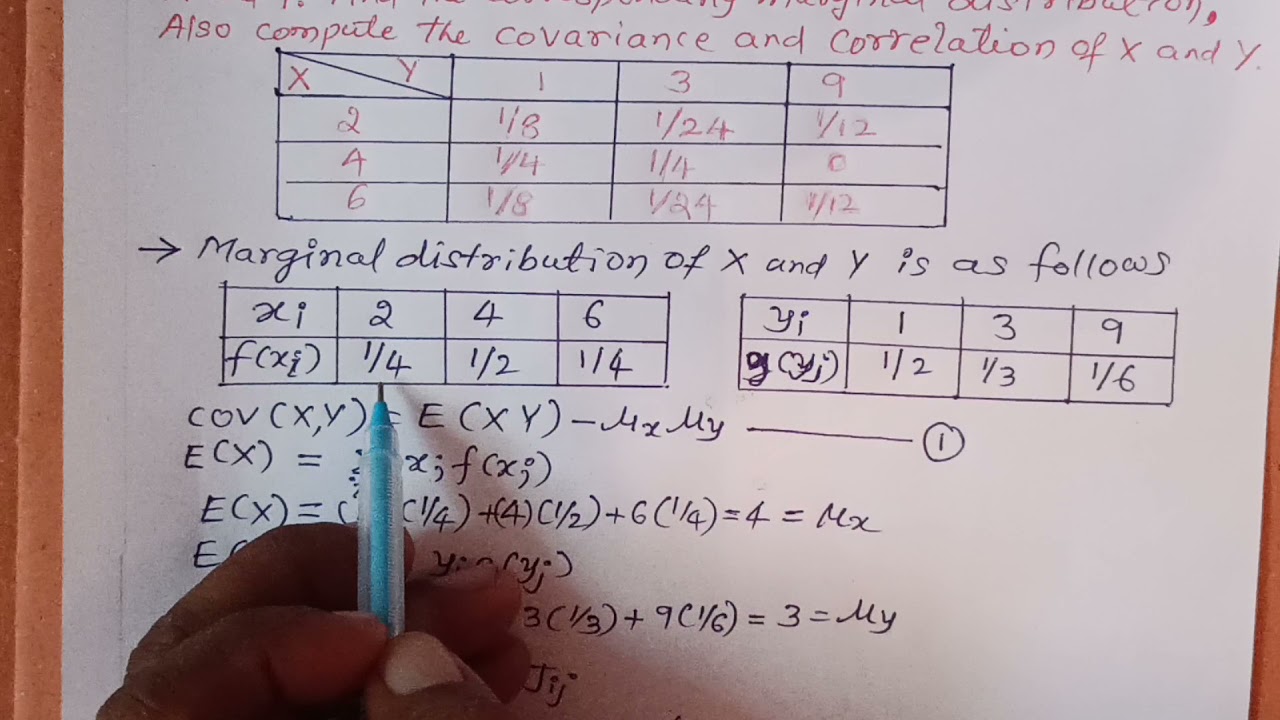 Also compute the covariance and correlation of X and Y.
X Y 1 3 9
2 1/8 1/24 1/12
4 1/4 1/4 0
6 1/8 1/24 1/12
→ Marginal distribution of X and Y is as follows
xi 2 4 6
f(xi) 1/4 1/2 1/4
yj 1 3 9
g(yj) 1/2 1/3 1/6
COV(X,Y) = E(XY) - μx μy —— ①
E(X) = xi f(xi)
E(X) = ( (1/4) + (4)(1/2) + 6(1/4) = 4 = μx
3(1/3) + 9(1/6) = 3 = μy
Jij